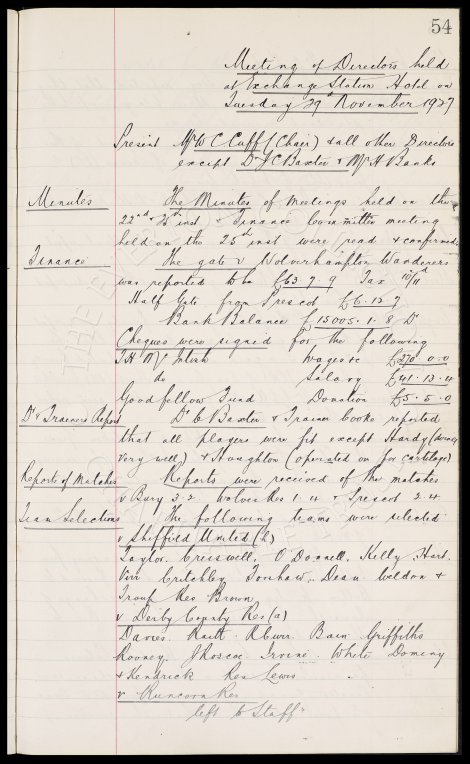 54
Meeting of Directors held
at Exchange Station Hotel on
Tuesday 29th November 1927
Present Mr W C Cuff (Chair) & all other Directors
except Dr J C Baxter & Mr A Banks
Minutes The Minutes of Meetings held on the
22nd & inst & Finance Committee meeting
held on the 25th inst were read & confirmed
Finance The gate v Wolverhampton Wanderers
was reported to be £63 7 9 Tax 10/11d
Half Gate from Prescot £6. 12 7
Bank Balance £15005. 1. 8 Dr
Cheques were signed for the following
T H McIntosh Wages &c £270 0. 0
do Salary £41. 13. 4
Goodfellow Fund Donation £5. 5. 0
Dr & Trainers Report Dr C Baxter & Trainer Cooke reported
that all players were fit except Hardy (doing
very well) & Houghton (operated on for cartilage)
Reports of Matches Reports were received of the matches
v Bury 3. 2. Wolves Res 1. 4 & Prescot 2. 4
Team Selections The following teams were selected
v Sheffield United (h)
Taylor. Cresswell. O'Donnell. Kelly. Hart.
Virr Critchley Forshaw. Dean Weldon &
Troup Res Brown
v Derby County Res (a)
Davies. Raitt. Kerr. Bain Griffiths
Rooney. J Roscoe. Irvine. White Dominy
& Kendrick Res Lewis
v Runcorn Res
left to Staff